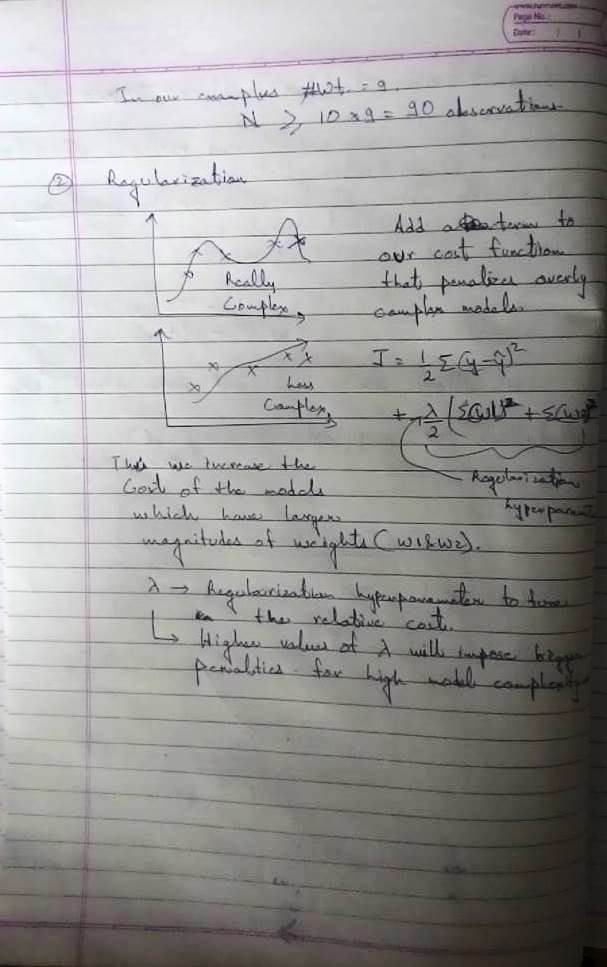 Page No.:
Date: / /
In our examples #Wt. = 9.
N ⩾ 10 x 9 = 90 observations.
② Regularization
Really
Complex
Add a term to
our cost function
that penalizes overly
complex models.
Less
Complex
J = 1/2 Σ(y-ŷ)²
+ λ/2 (Σ(W1)² + Σ(W2)²
Regularization
hyperparam
Thus we increase the
Cost of the models
which have larger
magnitudes of weights (W1&W2).
λ → Regularization hyperparameter to tune
the relative cost.
↳ Higher values of λ will impose bigger
penalties for high model complexity